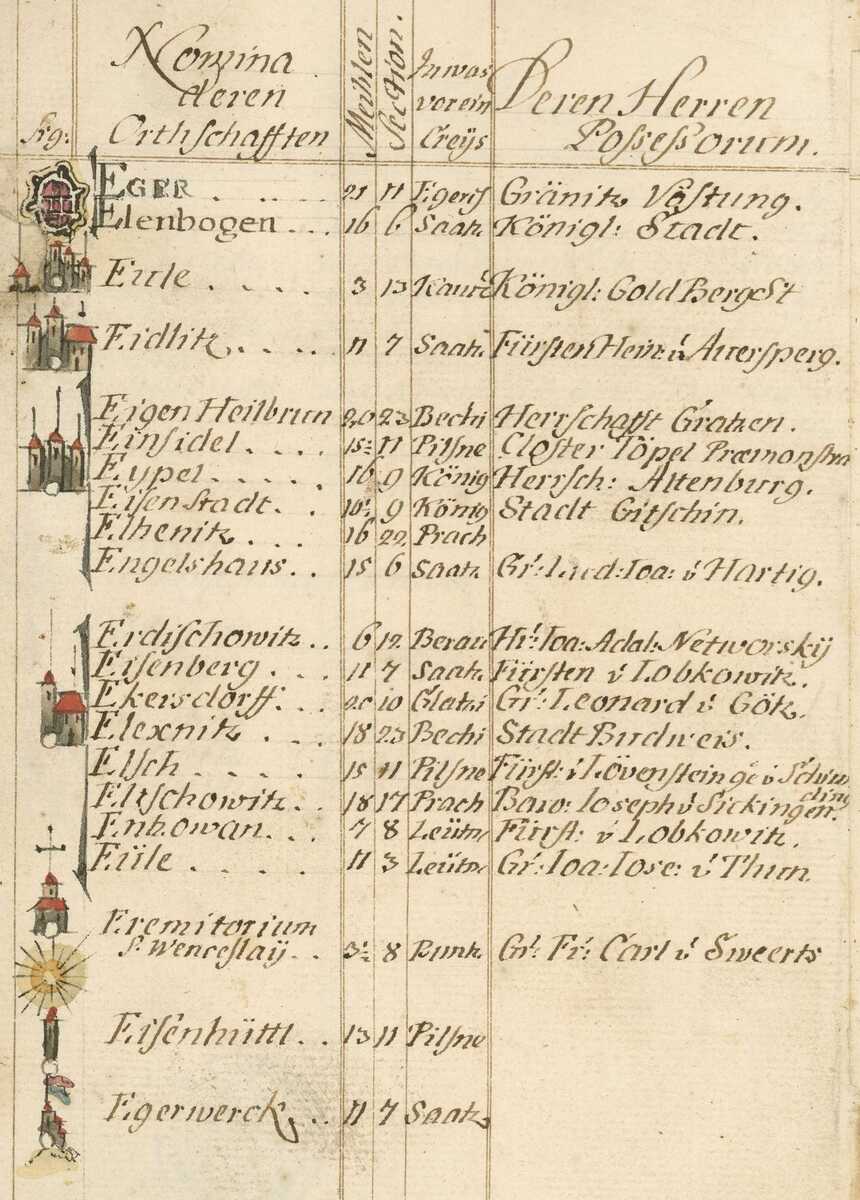 Fig: Nomina deren Orthschafften Meihlen Section. In was vor ein Creÿs Deren Herren Possessorum.
EGER . . . . . 21 11 Egeris Gränitz Vöstung.
Elenbogen . . . 16 6 Saatz Königl: Stadt.
Eule . . . . . 3 13 Kaurz Königl: Gold BergSt
Eidlitz, . . . . 11 7 Saatz. Fürsten Hein: v́ Auersperg.
Eigen Heilbrun 20 23 Bechi Herrschafft Gratzen.
Einsidel . . . . 15 11 Pilsne Closter Töpel Præmonstra
Eypel . . . . . 16 9 König Herrsch: Altenburg.
Eisenstadt . . 10 9 König Stadt Gitschin.
Elhenitz . . . 16 22 Prach
Engelshaus . . 15 6 Saatz Gr: Lud: Ioa: v́ Hartig.
Erdischowitz . . 6 12 Berau Hr: Ioa: Adal: Networskÿ
Eisenberg . . . 11 7 Saatz Fürsten v́ Lobkowitz.
Ekersdorff . . . 20 10 Glatzi Gr: Leonard v́ Götz.
Elexnitz . . . 18 23 Bechi Stadt Budweis.
Elsch . . . . 15 11 Pilsne Fürst: v́ Lövenstein
Eltschowitz . . 18 17 Prach Baro: Ioseph v́ Sickingen.
Entzowan . . . 7 8 Leütm Fürst: v́ Lobkowitz.
Eüle . . . . . 11 3 Leütm Gr: Ioa: Iose: v́ Thun
Eremitorium
S. Wenceslaÿ . . 3 8 Buntz Gr: Fr: Carl v́ Sweerts
Eisenhüttl . . 13 11 Pilsne
Egerwerck, . . 11 7 Saatz